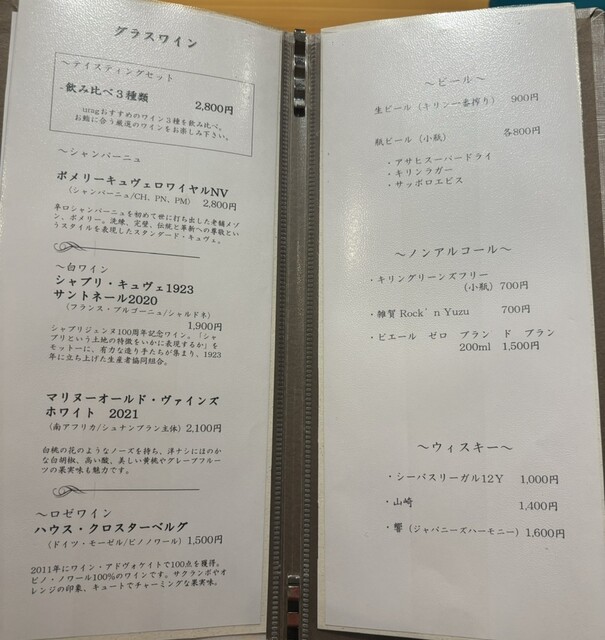 グラスワイン
～テイスティングセット
・飲み比べ3種類
2,800円
urugおすすめのワイン3種を飲み比べ。
お鮨に合う厳選のワインをお楽しみ下さい。
～シャンパーニュ
ポメリーキュヴェロワイヤルNV
（シャンパーニュ/CH、PN、PM） 2,800円
辛口シャンパーニュを初めて世に打ち出した老舗メゾ
ン、ポメリー。洗練、完璧、伝統と革新への尊敬とい
うスタイルを表現したスタンダード・キュヴェ。
～白ワイン
シャブリ・キュヴェ1923
サントネール2020
（フランス・ブルゴーニュ/シャルドネ）
1,900円
シャブリジェンヌ100周年記念ワイン。「シャ
ブリという土地の特徴をいかに表現するか」を
モットーに、有力な造り手たちが集まり、1923
年に立ち上げた生産者協同組合。
マリヌーオールド・ヴァインズ
ホワイト 2021
（南アフリカ/シュナンブラン主体）2,100円
白桃の花のようなノーズを持ち、洋ナシにほのか
な白胡椒、高い酸、美しい黄桃やグレープフルー
ツの果実味も魅力です。
～ロゼワイン
ハウス・クロスターベルグ
（ドイツ・モーゼル/ピノノワール）1,500円
2011年にワイン・アドヴォケイトで100点を獲得。
ピノ・ノワール100%のワインです。サクランボやオ
レンジの印象、キュートでチャーミングな果実味。
～ビール～
生ビール（キリン一番搾り） 900円
瓶ビール（小瓶） 各800円
・アサヒスーパードライ
・キリンラガー
・サッポロエビス
～ノンアルコール～
・キリングリーンズフリー
（小瓶）700円
・雑賀 Rock'n Yuzu 700円
・ピエール ゼロ ブラン ド ブラン
200ml 1,500円
～ウィスキー～
・シーバスリーガル12Y 1,000円
・山崎 1,400円
・響（ジャパニーズハーモニー）1,600円